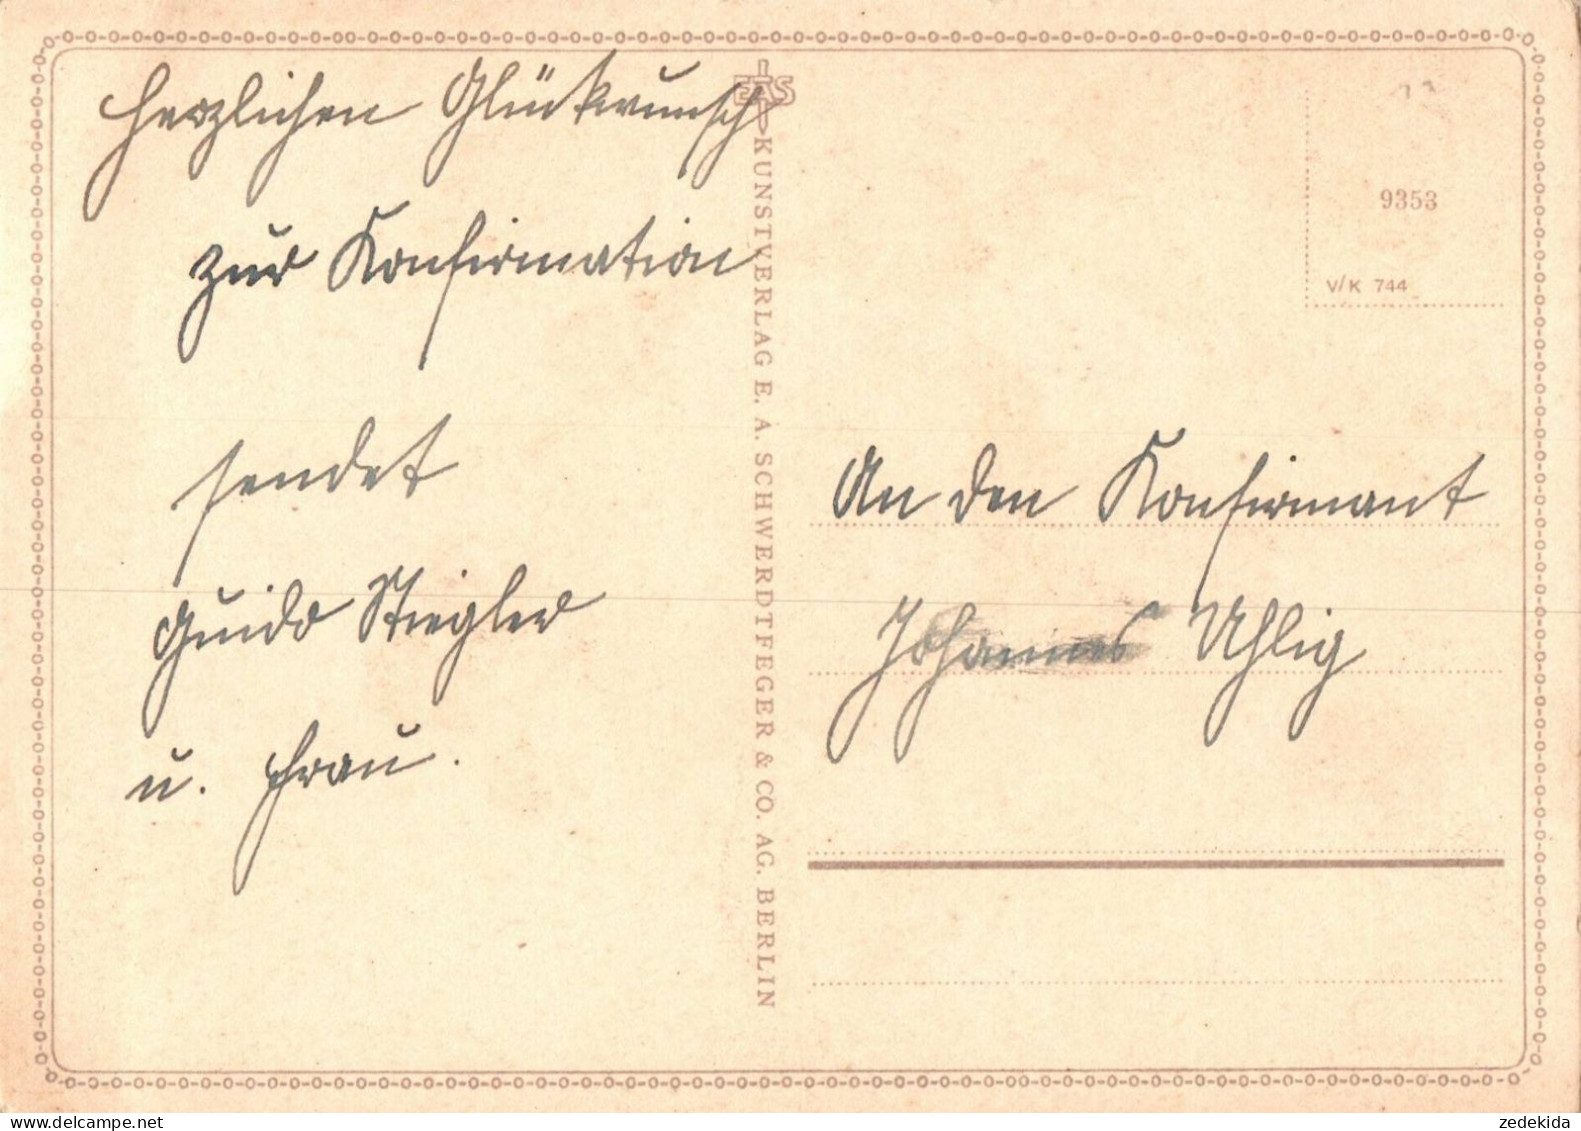 Herzlichen Glückwunsch
zur Konfirmation
sendet
Guido Stiegler
u. Frau.
EAS
KUNSTVERLAG E. A. SCHWERDTFEGER & CO. AG. BERLIN
9353
V/K 744
An den Konfirmant
Johannes Uhlig
delcampe.net
zedekida